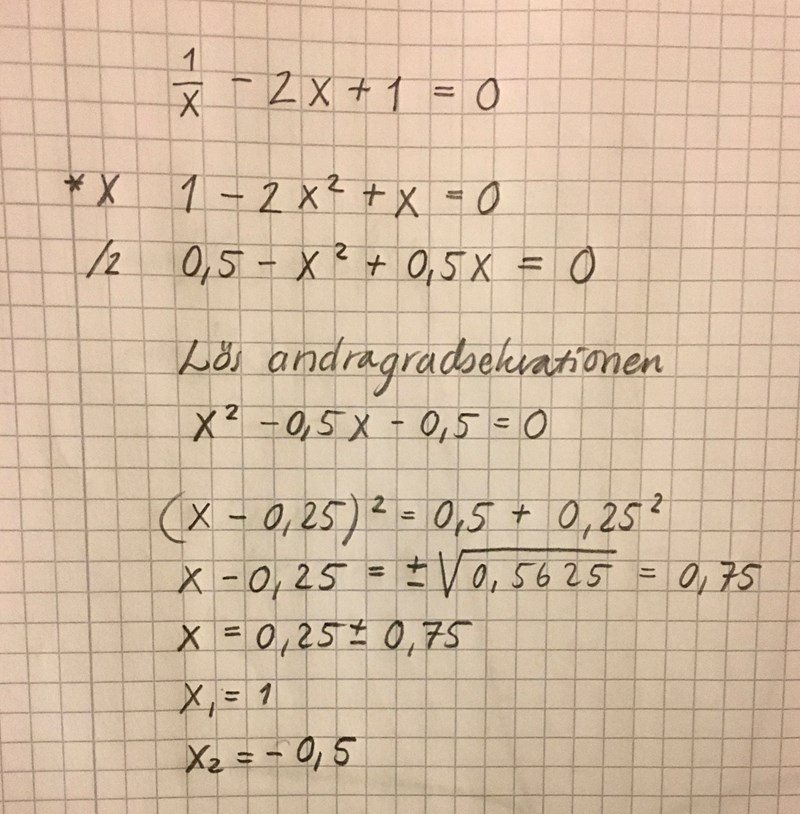 1/x - 2x + 1 = 0
*x 1 - 2x² + x = 0
/2 0,5 - x² + 0,5x = 0
Lös andragradsekvationen
x² - 0,5x - 0,5 = 0
(x - 0,25)² = 0,5 + 0,25²
x - 0,25 = ±√0,5625 = 0,75
x = 0,25 ± 0,75
x₁ = 1
x₂ = - 0,5